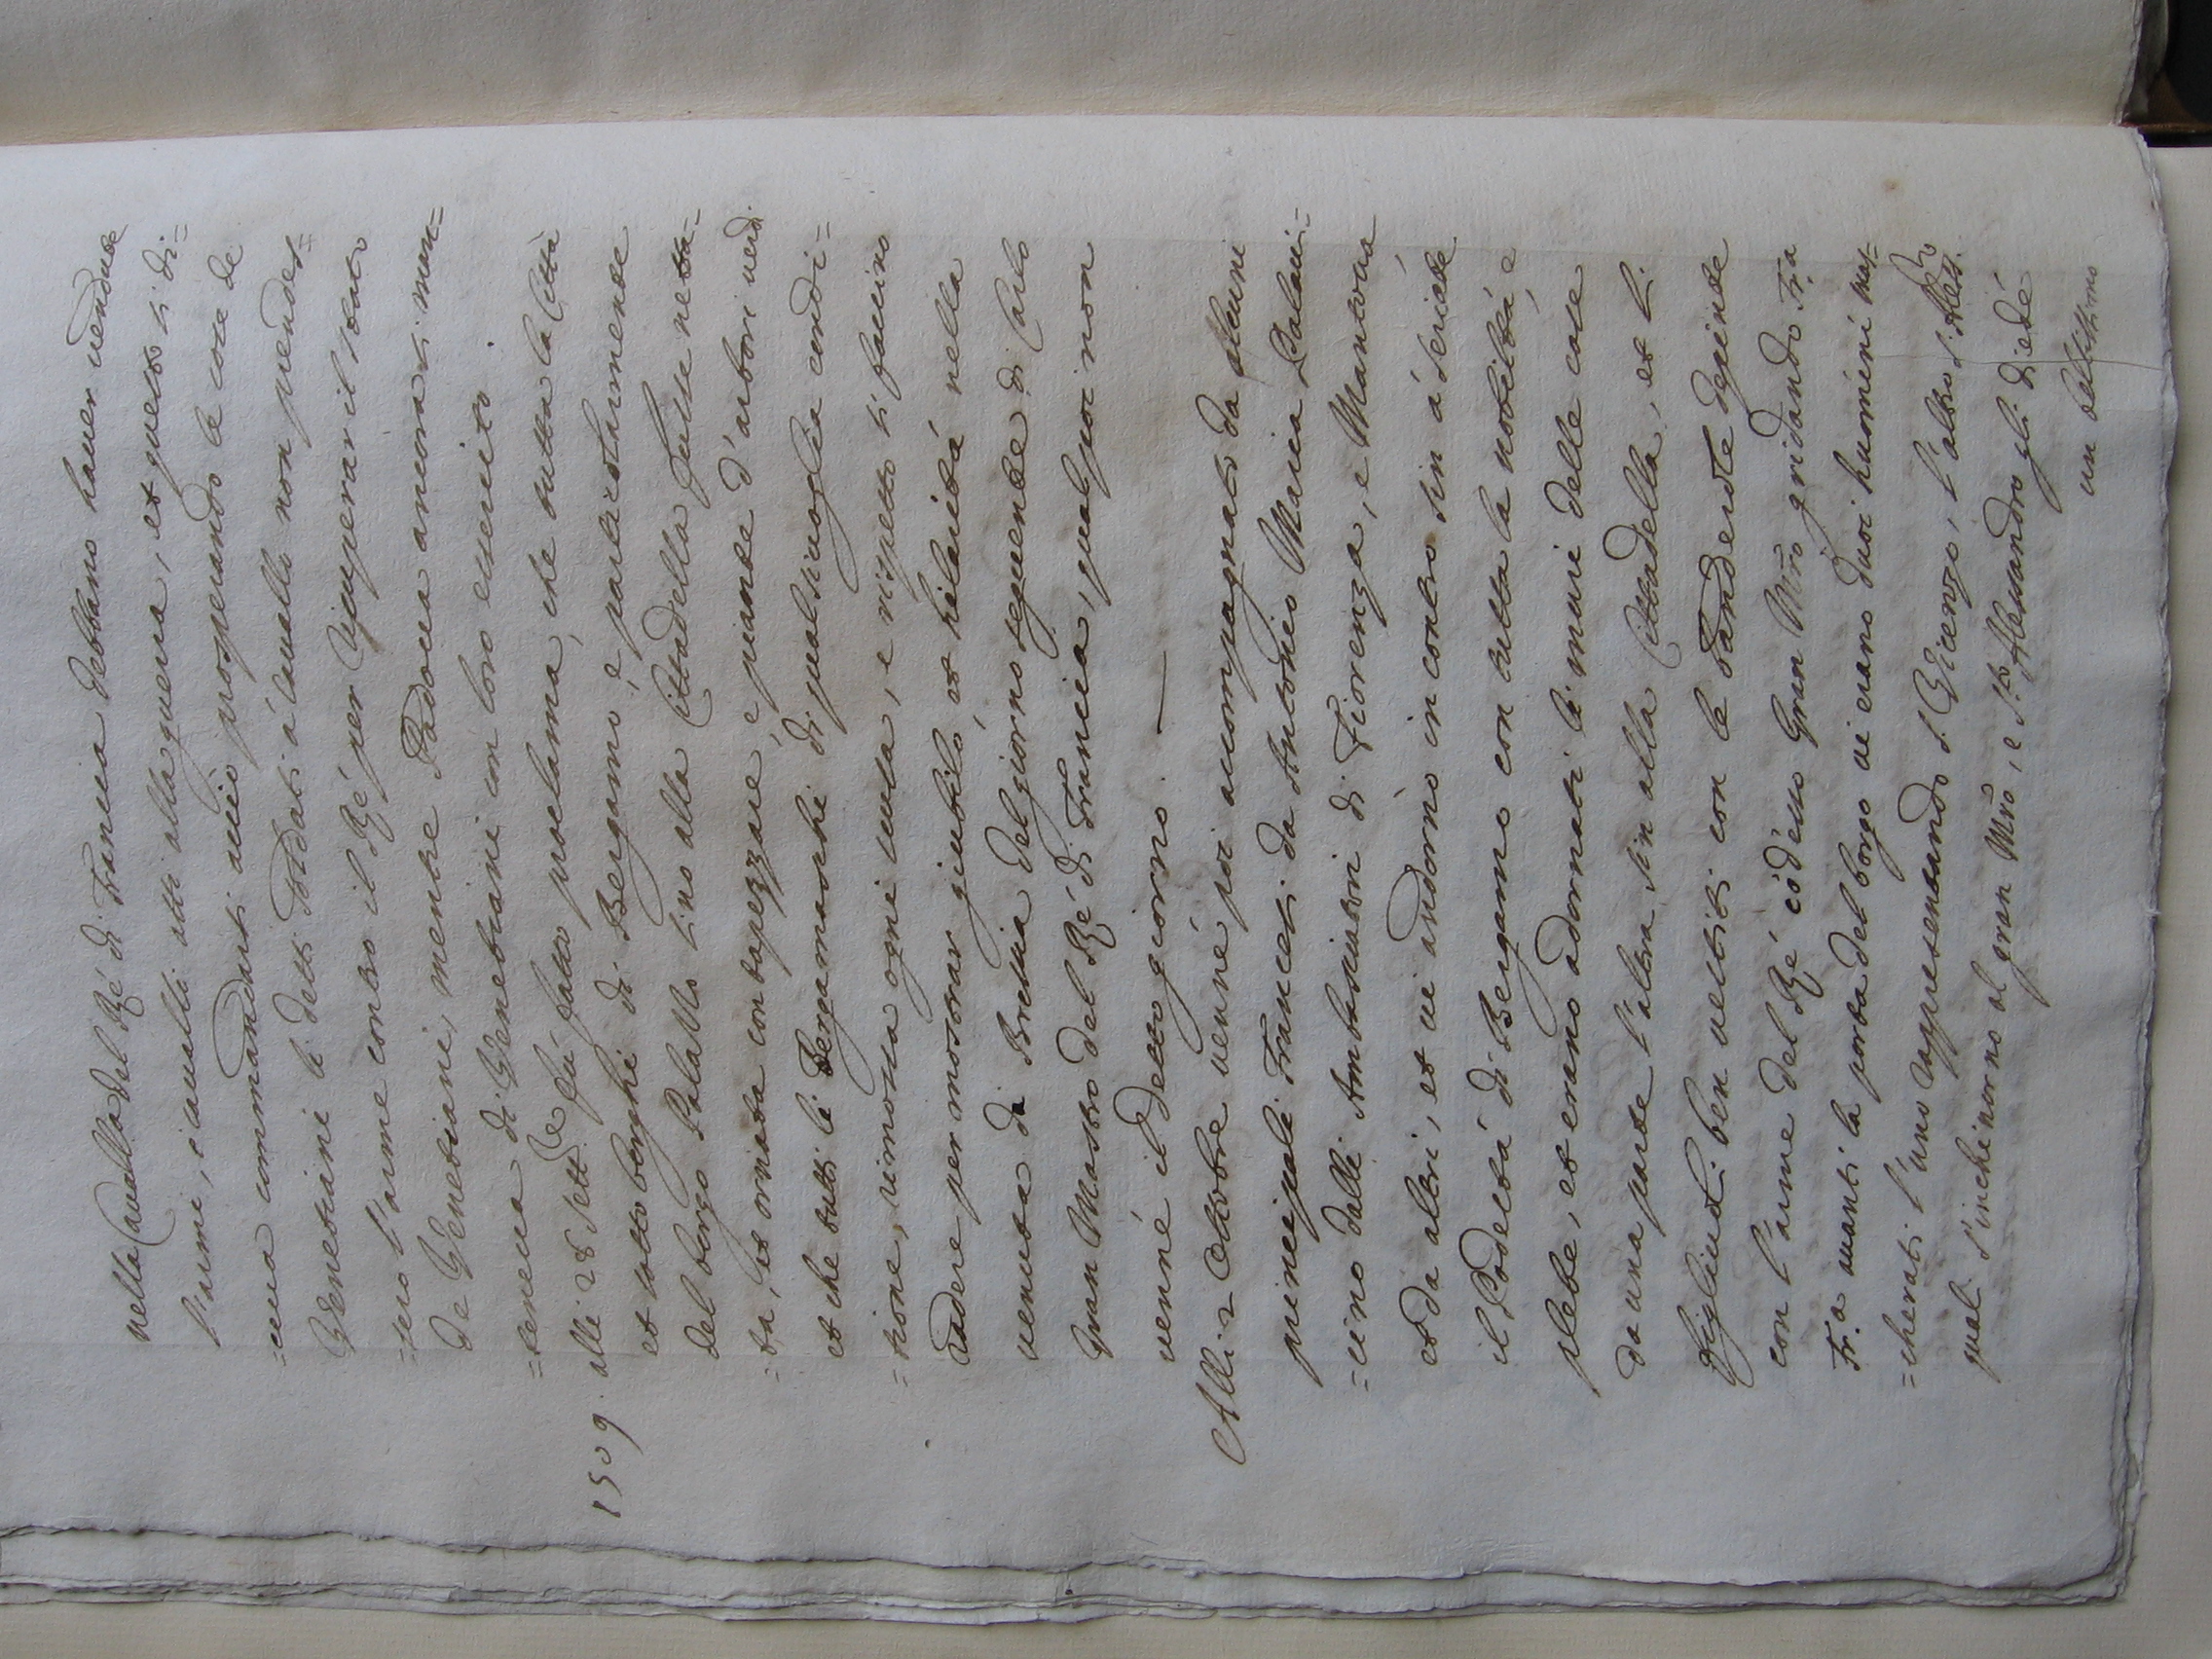 nella Cauallaria del Rè di Francia debbano hauer uendute
l'armi, e caualli atti alla guerra, et questo si di=
=ceua commandarsi acciò prosperando le cose de
Venetiani li detti soldati à cauallo non prendes=
=sero l'arme contro il Rè per ricuperar il stato
de Venetiani, mentre Padoua ancora si man=
=teneua di Venetiani con loro essercito.
1509. alli 28 Sett.e fù fatto proclama, che tutta la Città
et sotto borghi di Bergamo, e particolarmente
del borgo Palazzo sino alla Cittadella fusse netta=
=ta, et ornata con tapezzarie, e piante d'arbori uerdi
et che tutti li Bergamaschi di qualsiuoglia condi=
=tione, rimossa ogni cura, e rispetto si faccino
uadere per mostrar giubilo, et hilarità nella
uenuta da Brescia del giorno seguente di Carlo
gran Mastro del Rè di Francia, qual poi non
uenne il detto giorno. —
Alli 2 Ottobre uenne poi accompagnato da alcuni
principali Francesi da Antonio Maria Palaui=
=cino dalli Ambasciatori di Fiorenza, e Mantoua
et da altri, et ui andorno incontro sin à Seriate
il Podestà di Bergamo con tutta la nobiltà, e
plebe, et erano adornati li muri delle case
da una parte l'altra sin alla Cittadella, et li
figliuoli ben uestiti con le banderole depinte
con l'arme del Rè, e d'esso Gran Mro gridando Fr.a
Fr.a auanti la porta del borgo ui erano duoi huomini mas=
=cherati l'uno rappresentando S. Vicenzo, l'altro S. Aless.ro
quali s'inchinorno al gran Mro, e S.to Alessandro gli diede
un bellissimo